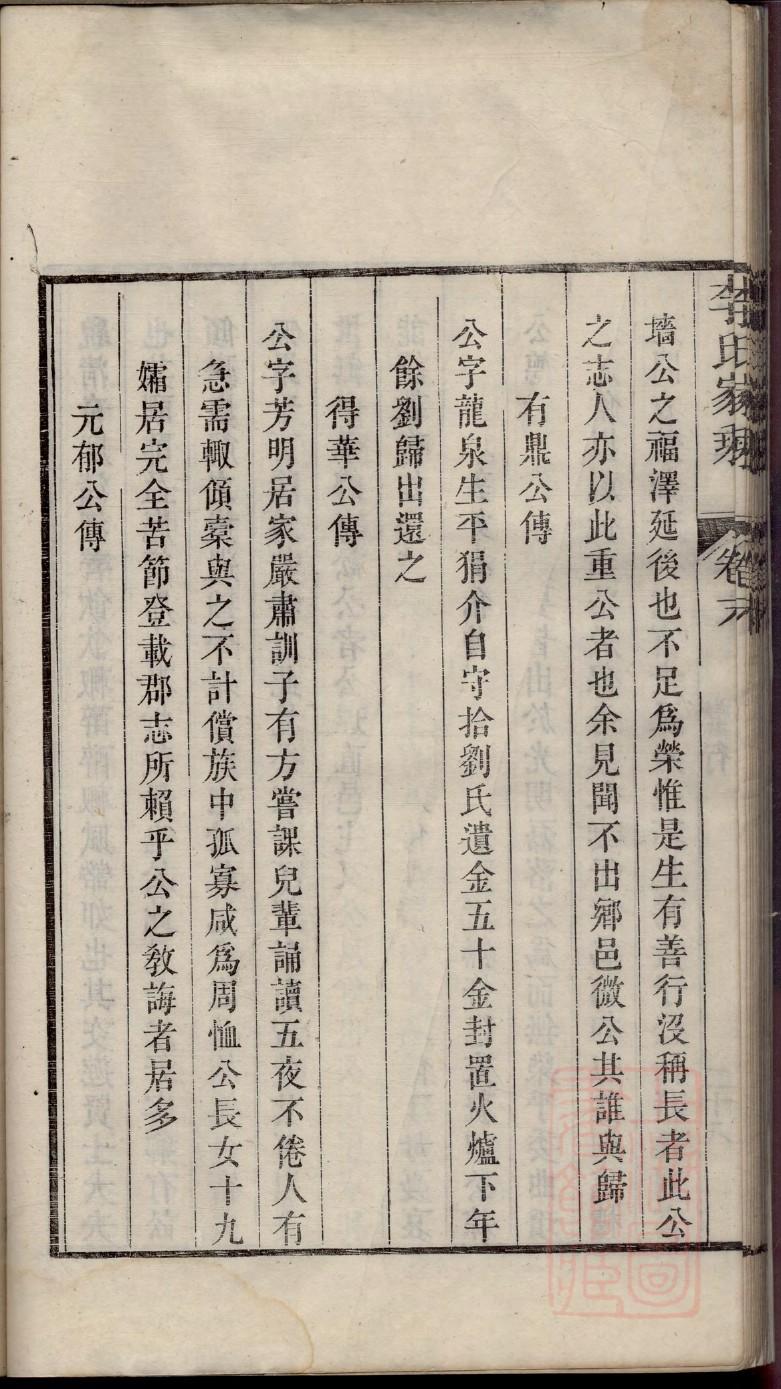 李氏家乘
卷六
墻公之福澤延後也不足爲榮惟是生有善行沒稱長者此公
之志人亦以此重公者也余見聞不出鄉邑微公其誰與歸
有鼎公傳
公字龍泉生平狷介自守拾劉氏遺金五十金封置火爐下年
餘劉歸出還之
得華公傳
公字芳明居家嚴肅訓子有方嘗課兒輩誦讀五夜不倦人有
急需輒傾橐與之不計償族中孤寡咸爲周恤公長女十九
孀居完全苦節登載郡志所賴乎公之敎誨者居多
元郁公傳